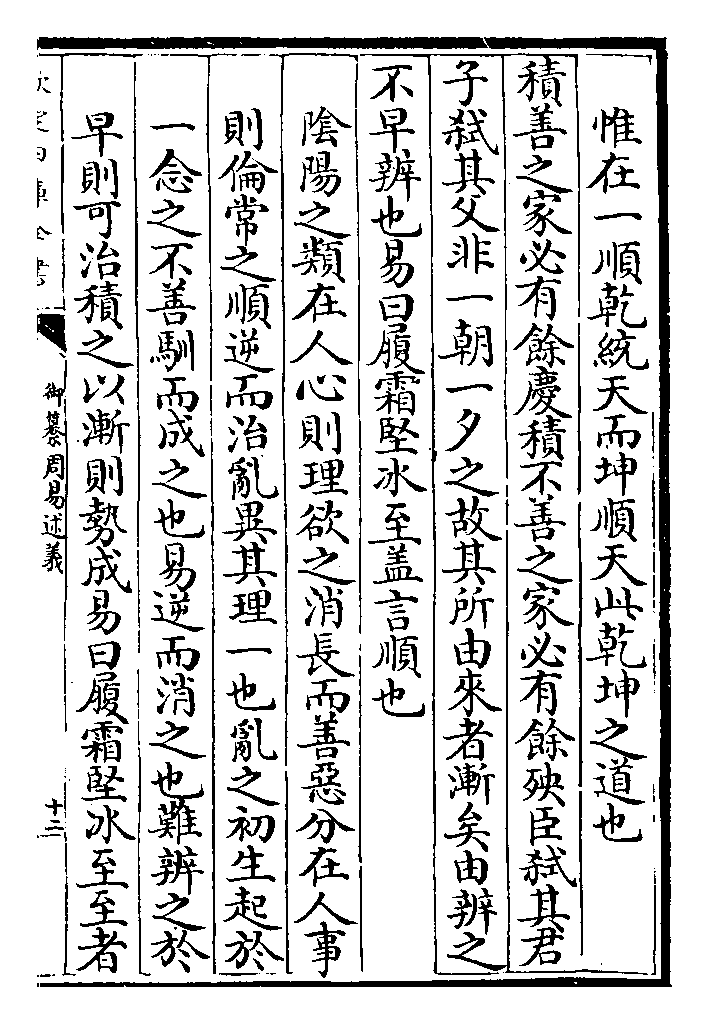 惟在一順乾統天而坤順天此乾坤之道也
積善之家必有餘慶積不善之家必有餘殃臣弑其君
子弑其父非一朝一夕之故其所由來者漸矣由辨之
不早辨也易曰履霜堅冰至盖言順也
陰陽之類在人心則理欲之消長而善惡分在人事
則倫常之順逆而治亂異其理一也亂之初生起於
一念之不善馴而成之也易逆而消之也難辨之於
早則可治積之以漸則勢成易曰履霜堅冰至至者
欽定四庫全書
御纂周易述義
十三